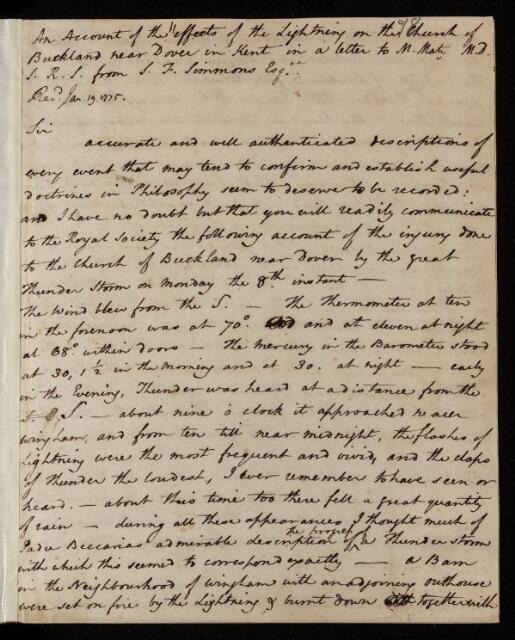 An Account of the effects of the Lightning on the Church of
Buckland near Dover in Kent in a letter to M. Maty M.D.
S. R. S. from S. F. Simmons Esq.re
Red. Jan. 19. 1775.
Sir
accurate and well authenticated descriptions of
every event that may tend to confirm and establish useful
doctrines in Philosophy seem to deserve to be recorded:
and I have no doubt but that you will readily communicate
to the Royal Society the following account of the injury done
to the Church of Buckland near Dover by the great
Thunder Storm on Monday the 8th instant —
the Wind blew from the S. — the Thermometer at ten
in the forenoon was at 70°. and at eleven at night
at 68° within doors — the Mercury in the Barometer stood
at 30, 1½ in the morning and at 30. at night — early
in the Evening, Thunder was heard at a distance from the
S. — about nine o clock it approached nearer
wingham, and from ten till near midnight, the flashes of
Lightning were the most frequent and vivid, and the claps
of thunder the loudest, I ever remember to have seen or
heard. — about this time too there fell a great quantity
of rain — during all these appearances I thought much of
Padre Beccarias admirable description of the progress of a Thunder storm
with which this seemed to correspond exactly — a Barn
in the Neighbourhood of wingham with an adjoining outhouse
were set on fire by the Lightning & burnt down together with